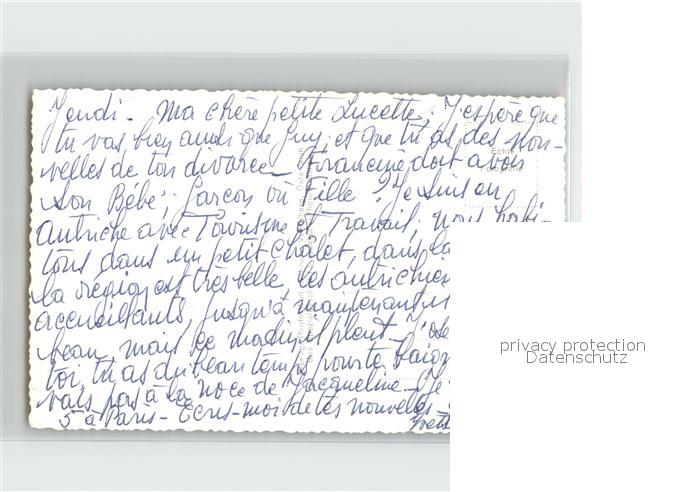 Jeudi - Ma chère petite Lucette, J'espère que
tu vas bien ainsi que Guy, et que tu as des nou-
velles de ton divorce - Francine doit avoir
son Bébé; Garçon ou Fille? Je suis en
autriche avec Tourisme et Travail, nous habi-
tons dans un petit chalet, dans la
la région est très belle, les autrichiens
accueillants, jusqu'à maintenant
beau, mais ce matin il pleut - J'es
toi, tu as du beau temps pour te baign
vais pas à la noce de Jacqueline - Je
5 à Paris - Ecris-moi de tes nouvelles -
Echte
privacy protection
Datenschutz